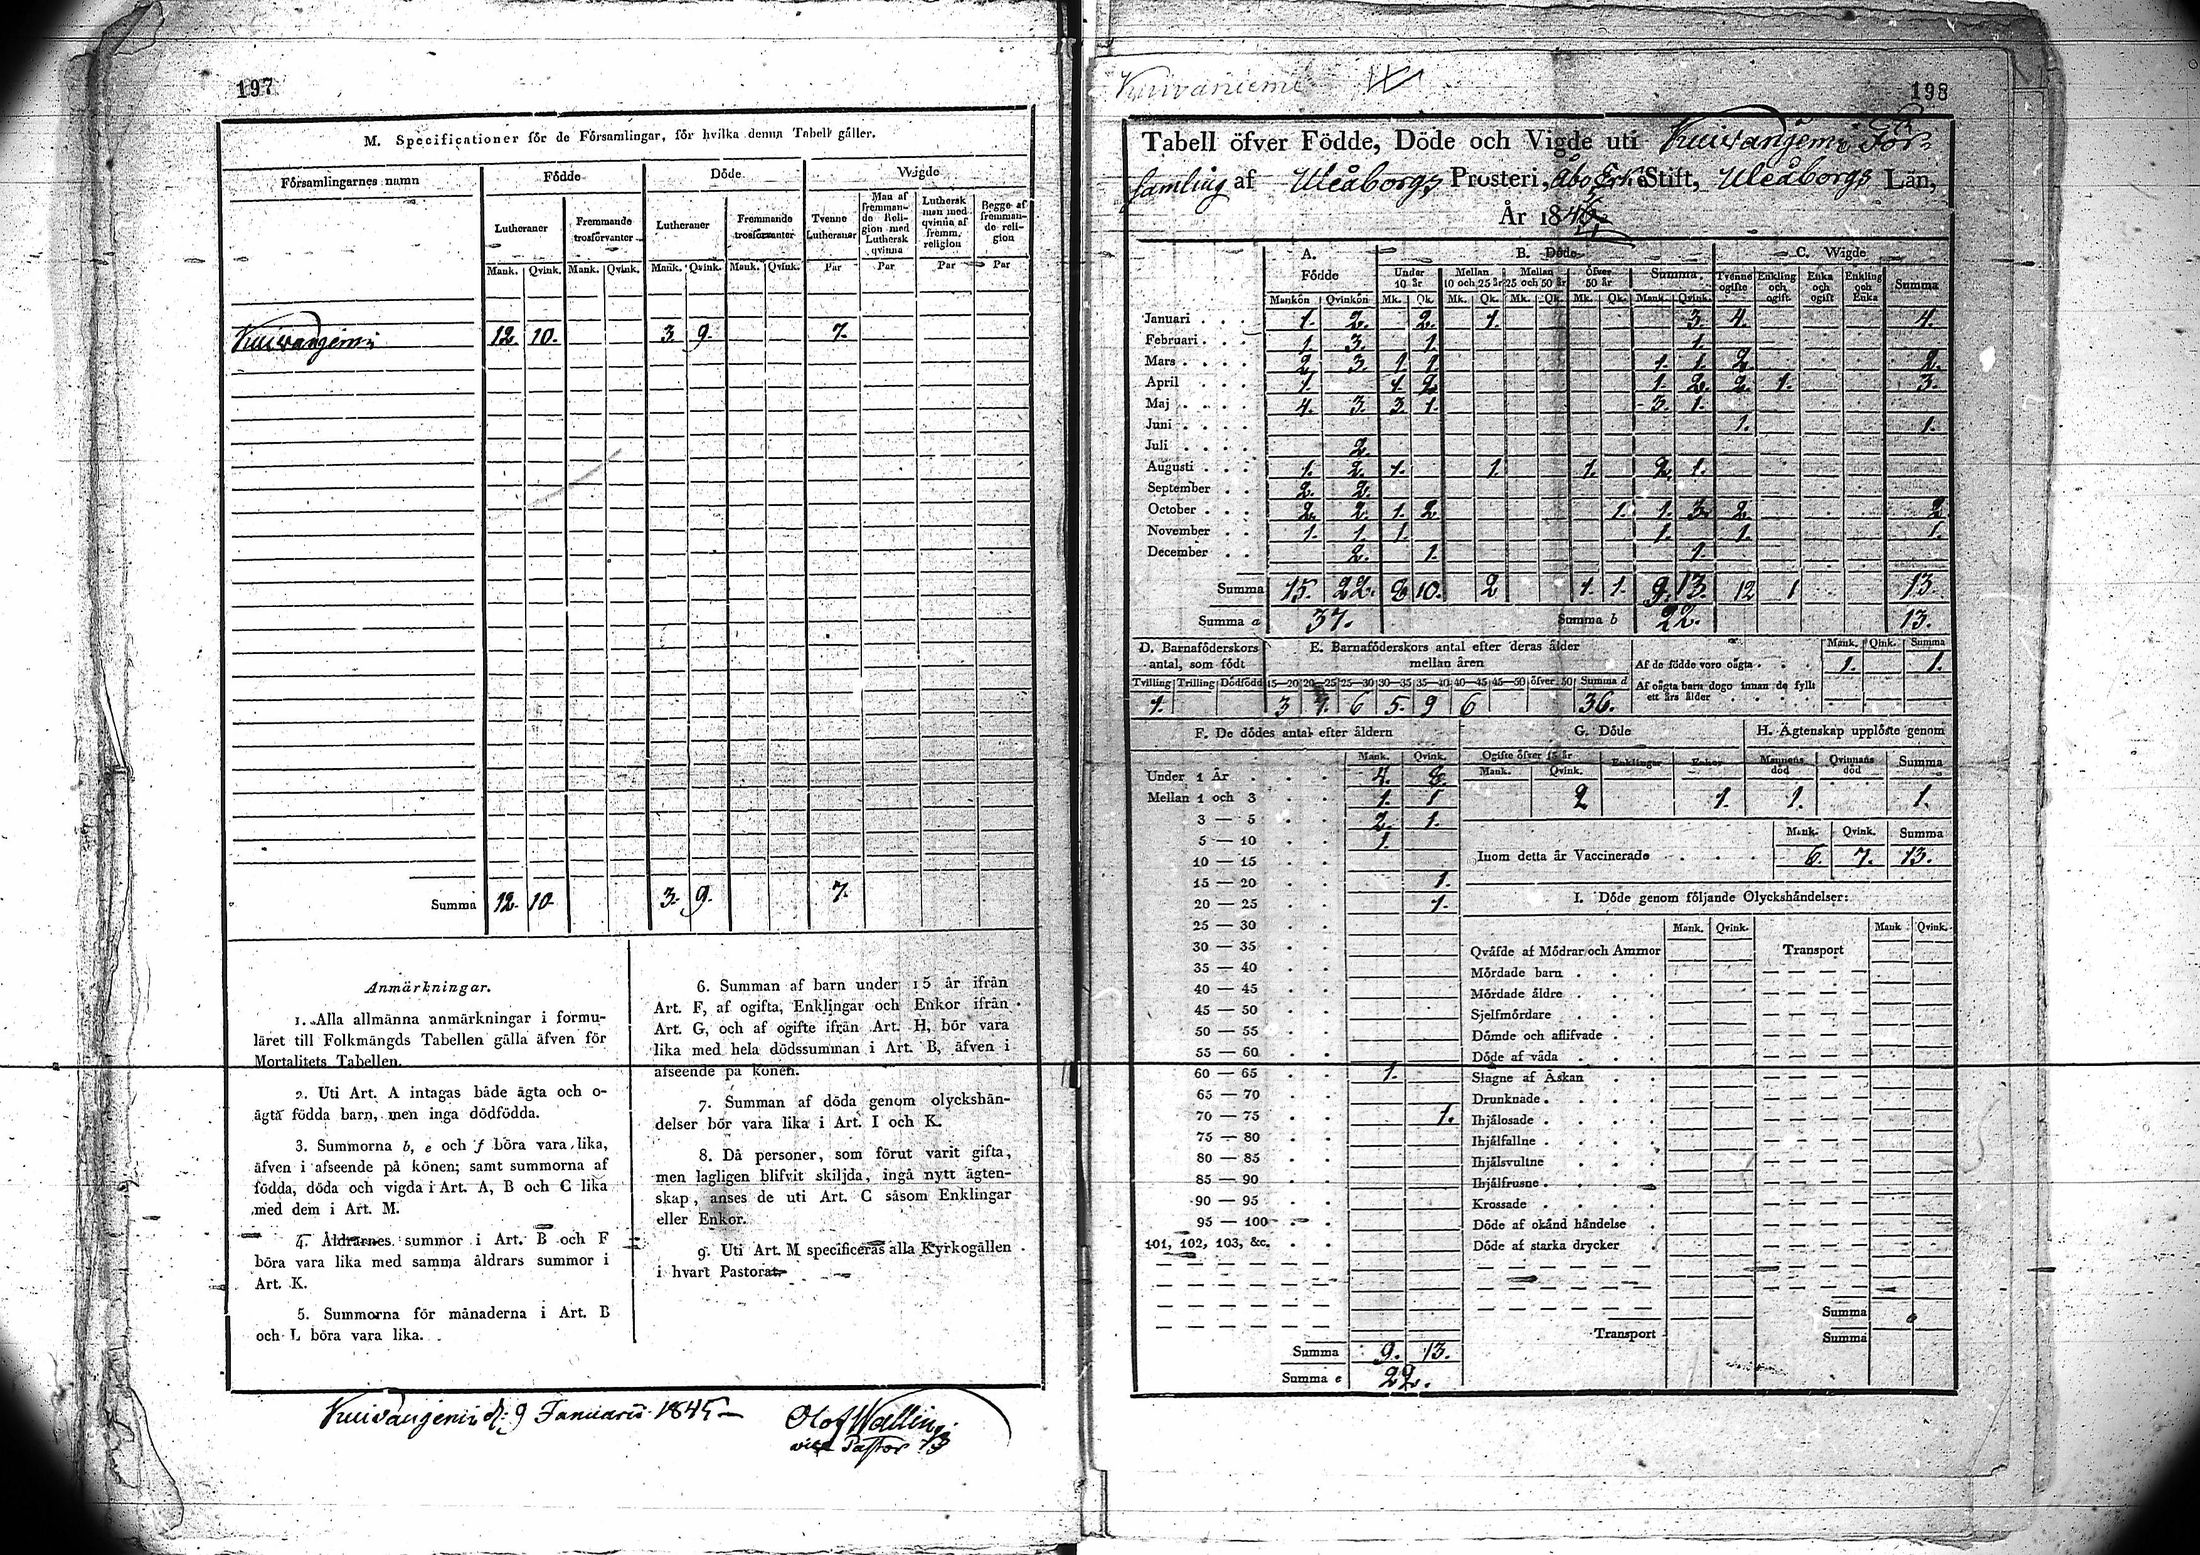 197
M. Specificationer för de Församlingar, för hvilka denna Tabell gäller.
Församlingarnes namn
Födde
Döde
Wigde
Lutheraner
Fremmande trosförvanter
Lutheraner
Fremmande trosförvanter
Tvenne Lutheraner
Man af fremmande Religion med Luthersk qvinna
Luthersk man med qvinna af fremm. religion
Begge af fremmande religion
Mank. Qvink. Mank. Qvink. Mank. Qvink. Mank. Qvink. Par Par Par Par
Kuivaniemi 12. 10. 3. 9. 7.
Summa 12. 10. 3. 9. 7.
Anmärkningar.
1. Alla allmänna anmärkningar i formu-
läret till Folkmängds Tabellen gälla äfven för
Mortalitets Tabellen.
2. Uti Art. A intagas både ägta och o-
ägta födda barn, men inga dödfödda.
3. Summorna b, e och f böra vara lika,
äfven i afseende på könen; samt summorna af
födda, döda och vigda i Art. A, B och C lika
med dem i Art. M.
4. Åldrarnes summor i Art. B och F
böra vara lika med samma åldrars summor i
Art. K.
5. Summorna för månaderna i Art. B
och L böra vara lika.
6. Summan af barn under 15 år ifrån
Art. F, af ogifta, Enklingar och Enkor ifrån
Art. G, och af ogifte ifrån Art. H, bör vara
lika med hela dödssumman i Art. B, äfven i
afseende på könen.
7. Summan af döda genom olyckshän-
delser bör vara lika i Art. I och K.
8. Då personer, som förut varit gifta,
men lagligen blifvit skiljda, ingå nytt ägten-
skap, anses de uti Art. C såsom Enklingar
eller Enkor.
9. Uti Art. M specificeras alla Kyrkogällen
i hvart Pastorat.
d. 9 Januarii 1845
Olof Walling
vice Pastor
Kuivaniemi
198
Tabell öfver Födde, Döde och Vigde uti Kuivaniemi För-
samling af Uleåborgs Prosteri, Åbo Erke Stift, Uleåborgs Län,
År 184
A. Födde
B. Döde
C. Wigde
Under 10 år
Mellan 10 och 25 år
Mellan 25 och 50 år
Öfver 50 år
Summa
Tvenne ogifte
Enkling och ogift
Enka och ogift
Enkling och Enka
Summa
Mankön Qvinkön Mk. Qk. Mk. Qk. Mk. Qk. Mk. Qk. Mank. Qvink.
Januari 1. 2. 2. 1. 3. 4. 4.
Februari 1. 3. 1. 1.
Mars 2. 3. 1. 1. 1. 1. 2. 2.
April 1. 1. 2. 1. 2. 2. 1. 3.
Maj 4. 3. 3. 1. 3. 1.
Juni 1. 1.
Juli 2.
Augusti 1. 2. 1. 1. 1. 2. 1.
September 2. 2.
October 2. 2. 1. 2. 1. 1. 3. 2. 2.
November 1. 1. 1. 1. 1. 1.
December 2. 1. 1.
Summa 15. 22. 8 10. 2 1. 1. 9. 13. 12 1 13.
Summa a 37. Summa b 22. 13.
D. Barnaföderskors antal, som födt
E. Barnaföderskors antal efter deras ålder mellan åren
Mank. Qink. Summa
Af de födde voro oägta 1. 1.
Af oägta barn dogo innan de fyllt
ett års ålder
Tvilling Trilling Dödfödd 15—20 20—25 25—30 30—35 35—40 40—45 45—50 öfver 50 Summa d
1. 3 6 5. 9 6 36.
F. De dödes antal efter åldern
Mank. Qvink.
Under 1 År 4. 8.
Mellan 1 och 3 1. 1
3 — 5 2. 1.
5 — 10 1.
10 — 15
15 — 20 1.
20 — 25 1.
25 — 30
30 — 35
35 — 40
40 — 45
45 — 50
50 — 55
55 — 60
60 — 65 1.
65 — 70
70 — 75 1.
75 — 80
80 — 85
85 — 90
90 — 95
95 — 100
101, 102, 103, &c.
Summa 9. 13.
Summa e 22.
G. Döde
Ogifte öfver 15 år
Mank. Qvink.
Enklingar
Enkor
2 1.
H. Ägtenskap upplöste genom
Mannens död
Qvinnans död
Summa
1. 1.
Mank. Qvink. Summa
Inom detta år Vaccinerade 6. 7. 13.
I. Döde genom följande Olyckshändelser:
Mank. Qvink. Mank. Qvink.
Qväfde af Mödrar och Ammor Transport
Mördade barn
Mördade äldre
Sjelfmördare
Dömde och aflifvade
Döde af våda
Slagne af Åskan
Drunknade
Ihjälosade
Ihjälfallne
Ihjälsvultne
Ihjälfrusne
Krossade
Döde af okänd händelse
Döde af starka drycker
Summa
Transport Summa